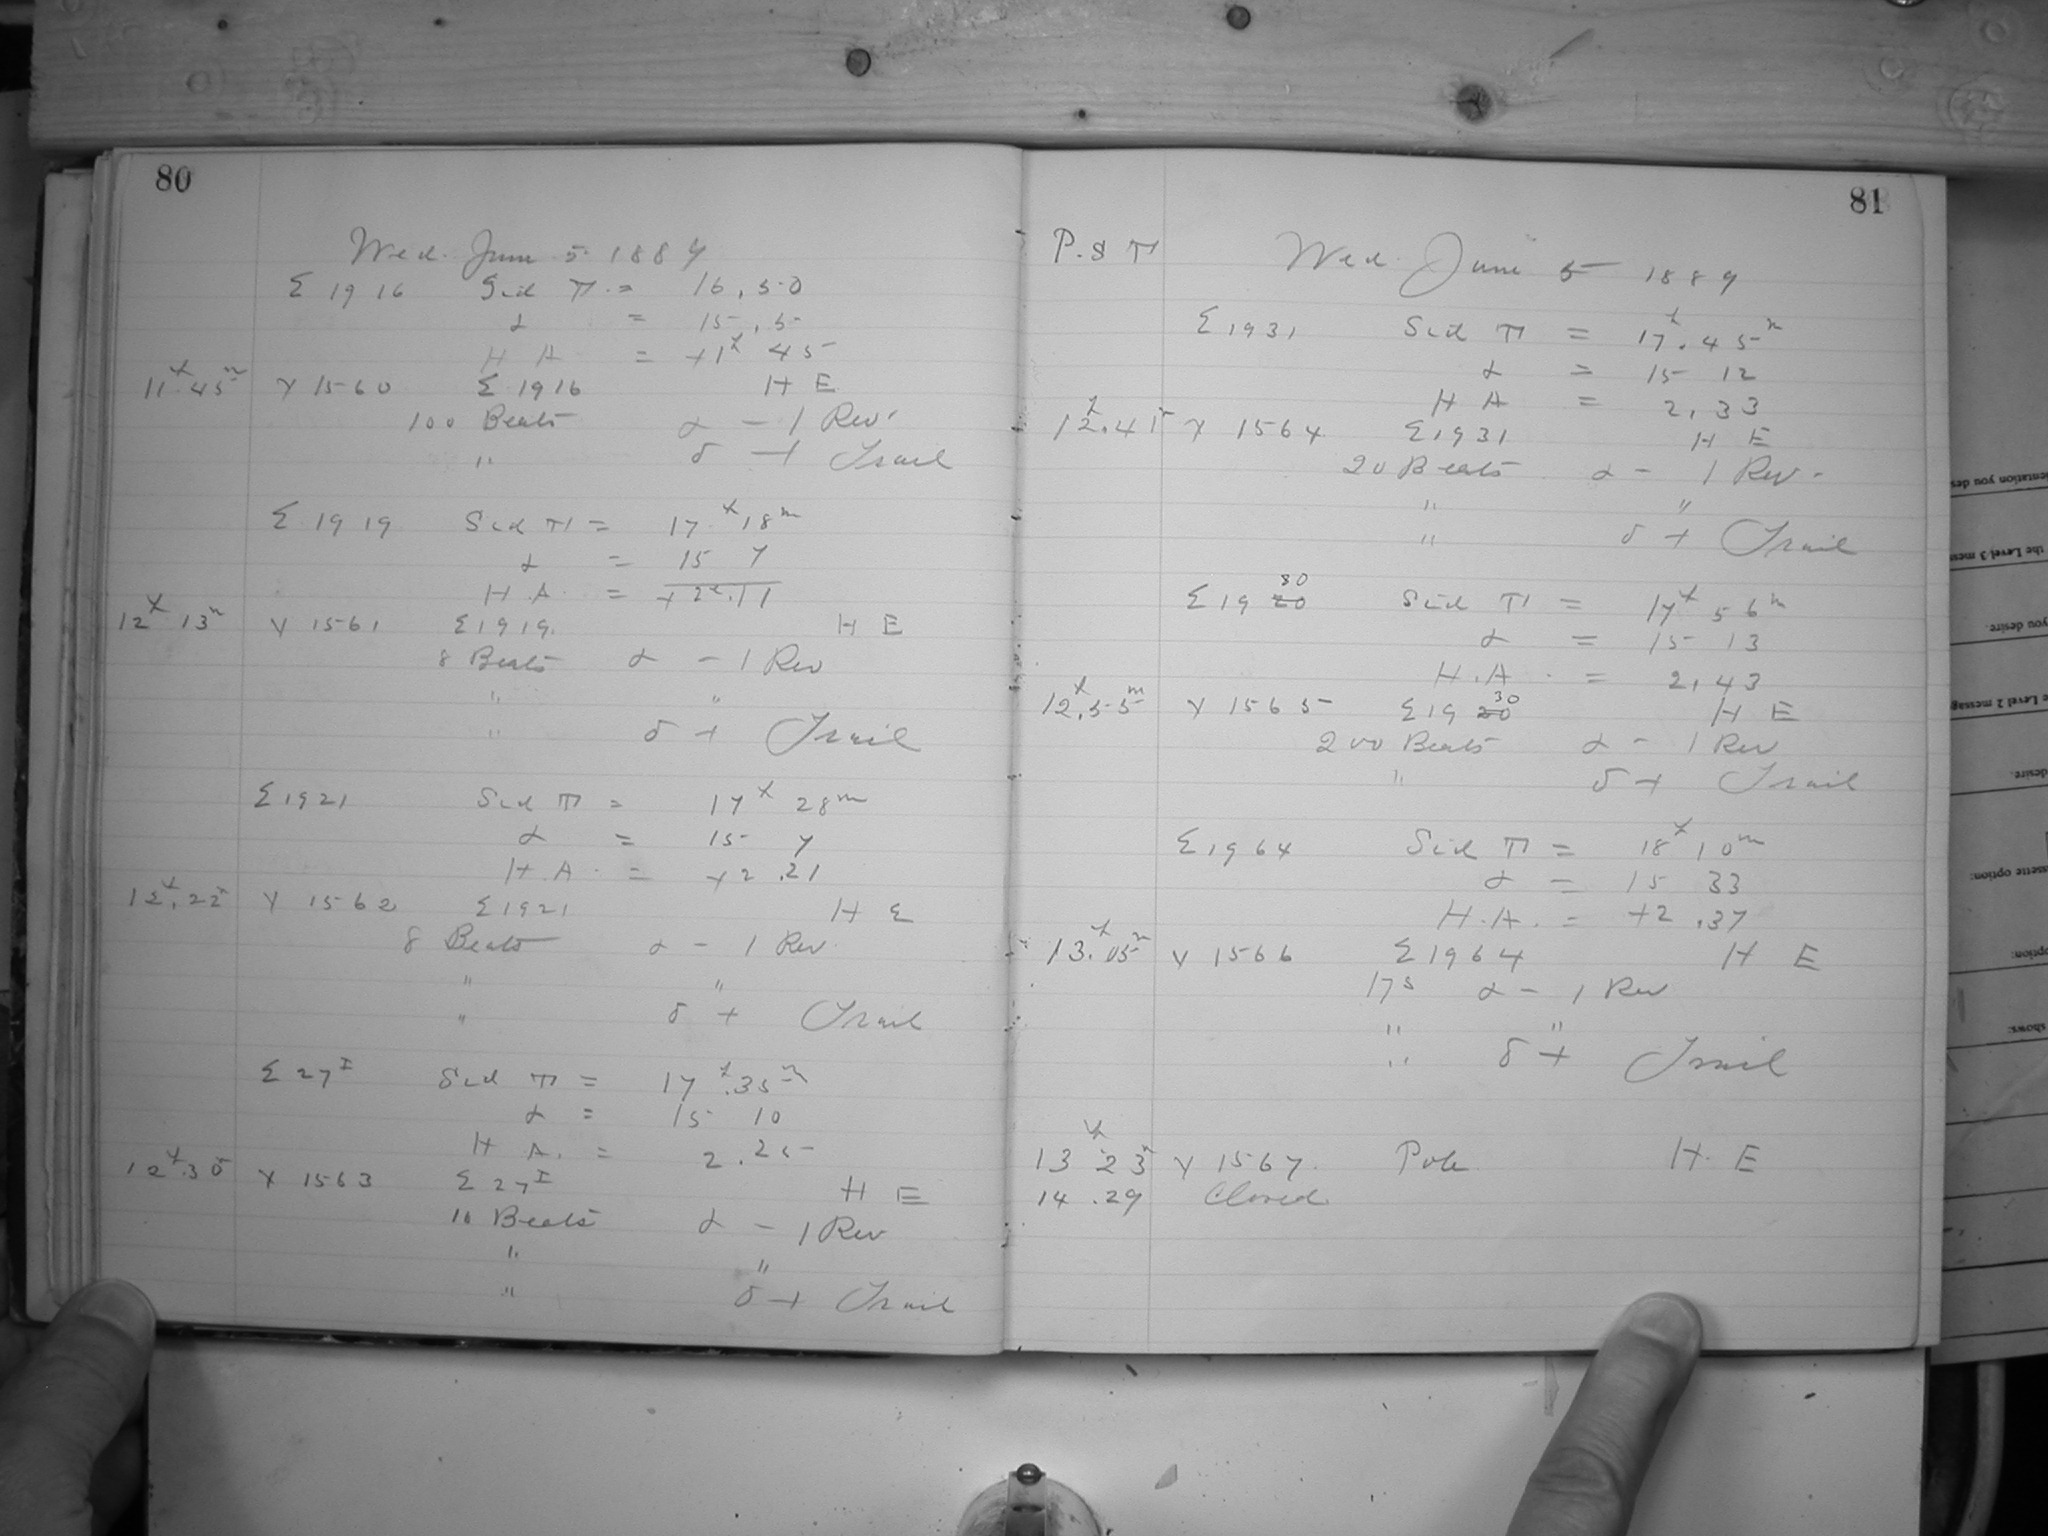 80
Wed. June 5 1889
Σ 1916 Sid T. = 16.50
α = 15.5
H A = +1h 45
11h.45m Y 1560 Σ 1916 H E
100 Beats α - 1 Rev.
" δ + Trail
Σ 1919 Sid T = 17h 18m
α = 15 7
H.A. = +2h.11
12h 13m Y 1561 Σ 1919. H E
8 Beats α - 1 Rev
" "
" δ + Trail
Σ 1921 Sid T = 17h 28m
α = 15 7
H.A. = +2.21
12h.22m Y 1562 Σ 1921 H E
8 Beats α - 1 Rev.
" "
" δ + Trail
Σ 27I Sid T = 17h.35m
α = 15 10
H A. = 2.25
12h.30 Y 1563 Σ 27I H E
10 Beats α - 1 Rev
" "
" δ + Trail
81
P.S T Wed June 5 1889
Σ 1931 Sid T = 17h.45m
α = 15 12
H A = 2.33
12h.41 Y 1564 Σ 1931 H E
20 Beats α - 1 Rev.
" "
" δ + Trail
Σ 19 20 30 Sid T = 17h 56m
α = 15 13
H.A. = 2.43
12h.55m Y 1565 Σ 19 20 30 H E
200 Beats α - 1 Rev
" δ + Trail
Σ 1964 Sid T = 18h 10m
α = 15 33
H.A. = +2.37
13h.05m Y 1566 Σ 1964 H E
17s α - 1 Rev
" "
" δ + Trail
13h 23m Y 1567. Pole H. E
14.29 Closed.